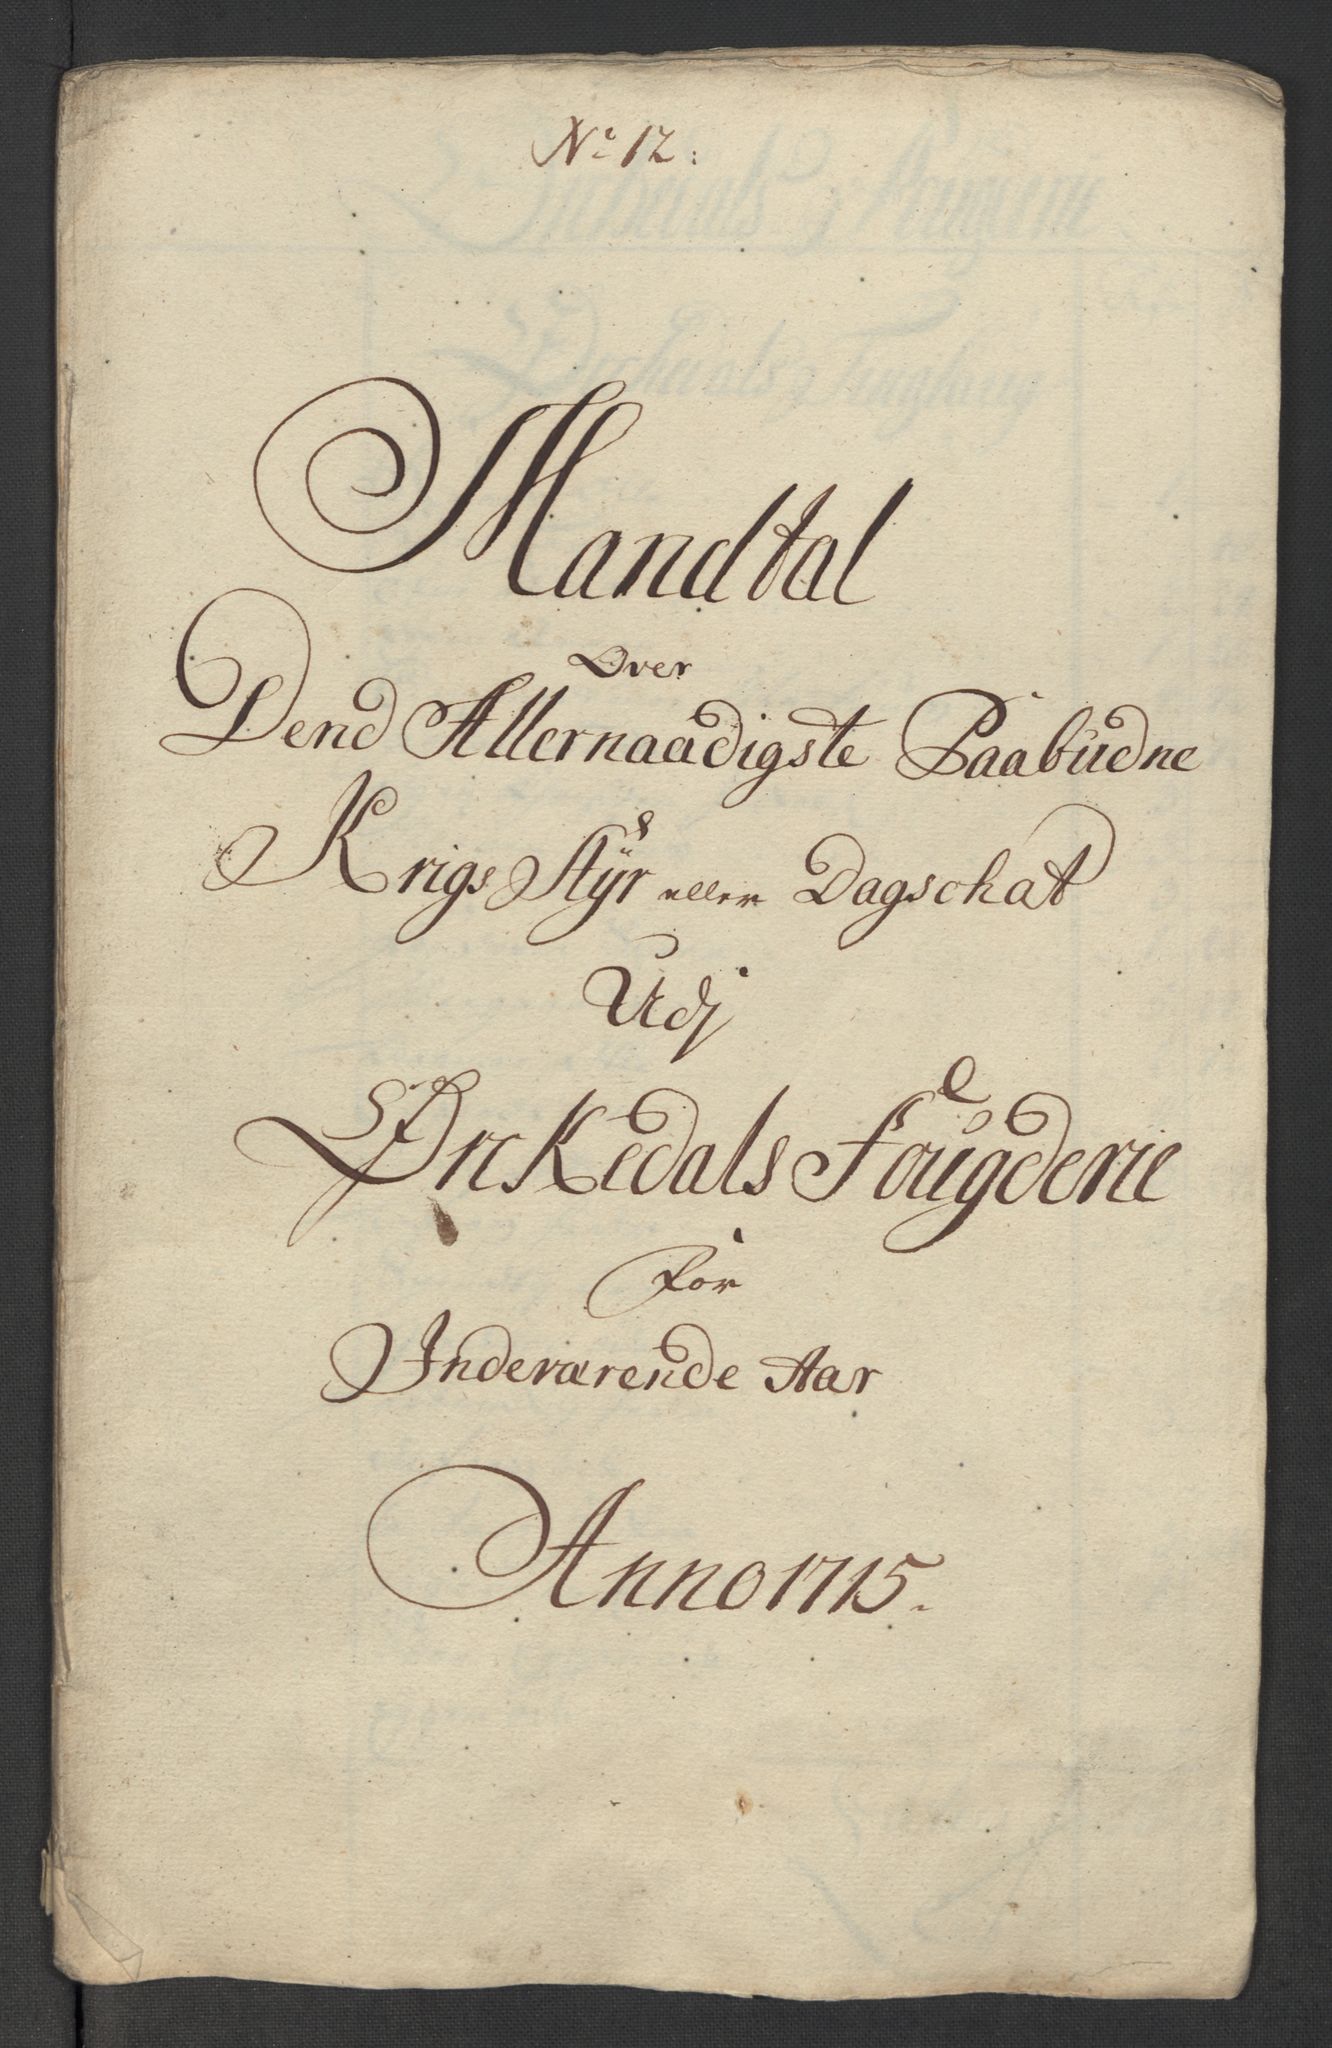 No 12:
Mandtal
Over
Dend Allernaadigste Paabudne
Krigs Styr eller Dagschat
Udj
Ørkedals Fougderie
For
Indeværende Aar
Anno 1715.